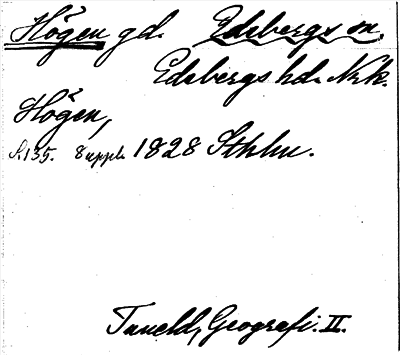 Högen gd. Edsbergs sn.
Edsbergs hd. Nrk.
Högen,
S. 135. 8 uppl. 1828 Sthlm.
Tuneld, Geografi. II.